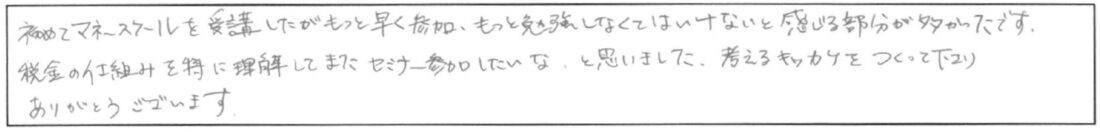 初めてマネースクールを受講したがもっと早く参加、もっと勉強しなくてはいけないと感じる部分が多かったです.
税金の仕組みを特に理解してまたセミナー参加したいな.と思いました.考えるキッカケをつくって下さり
ありがとうございます.